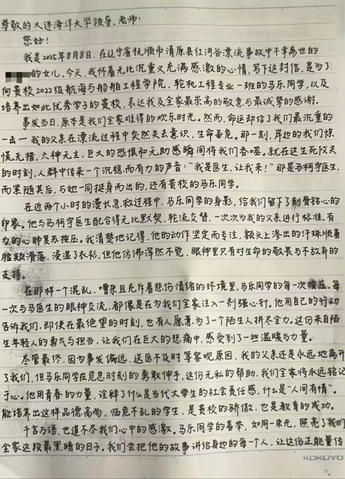 尊敬的大连海洋大学领导、老师：
您好！
我是2025年8月8日，在辽宁省抚顺市清原县红河谷漂流事故中不幸离世的
的女儿，今天，我怀着无比沉重又充满感激的心情，写下这封信，是为了
向贵校2022级航海与船舶工程学院，轮机工程专业一班的马乐同学，以及
培养出如此优秀学子的贵校，表达我及全家最崇高的敬意与最诚挚的感谢。
事发当日，原本是我们全家难得的欢乐时光。然而，命运却给了我们最沉重的
一击——我的父亲在漂流过程中突然失去意识，生命垂危。那一刻，岸边的我们惊
慌无措，六神无主，巨大的恐惧和无助感瞬间将我们吞噬。就在这生死攸关
的时刻，人群中传来一个沉稳而有力的声音："我是医生，让我来！"那是马柯宇医生，
而紧随其后，与她一同挺身而出的，还有贵校的马乐同学。
在近两个小时的漫长急救过程中，马乐同学的身影，给我们留下了刻骨铭心的
印象。他与马柯宇医生配合得无比默契，轮流交替，一次次为我的父亲进行标准、有
力的心肺复苏按压。我清楚地记得，他的动作坚定而专注，额头上渗出的汗珠顺着
脸颊滑落，浸湿了衣衫，但他仿佛浑然不觉，眼神里只有对生命的敬畏与不放弃的
支持。
在那样一个混乱、嘈杂且充斥着悲伤情绪的环境里，马乐同学的每一次按压，每
一次与马医生的眼神交流，都像是在为我们全家注入一剂强心针。他用自己的行动
告诉我们，即使在最绝望的时刻，也有人愿意为了一个陌生人拼尽全力。这份来自陌
生年轻人的勇气与担当，让我们在巨大的悲痛中，感受到了一丝温暖与力量。
尽管最终，因为事发偏远，送医不及时等客观原因，我的父亲还是永远地离开
了我们，但马乐同学在危急时刻的勇敢伸手，这份无私的帮助，我们全家将永远铭记
于心。他用青春的力量，诠释了什么是当代大学生的社会责任感，什么是"人间有情"。
能培养出这样品德高尚，临危不乱的学生，是贵校的骄傲，也是教育的成功。
千言万语，也道不尽我们心中的感激。马乐同学的善举，如同一束光，照亮了我们
全家这段最黑暗的日子。我们会把他的故事讲给身边的每一个人，让这份正能量传
KOKUYO